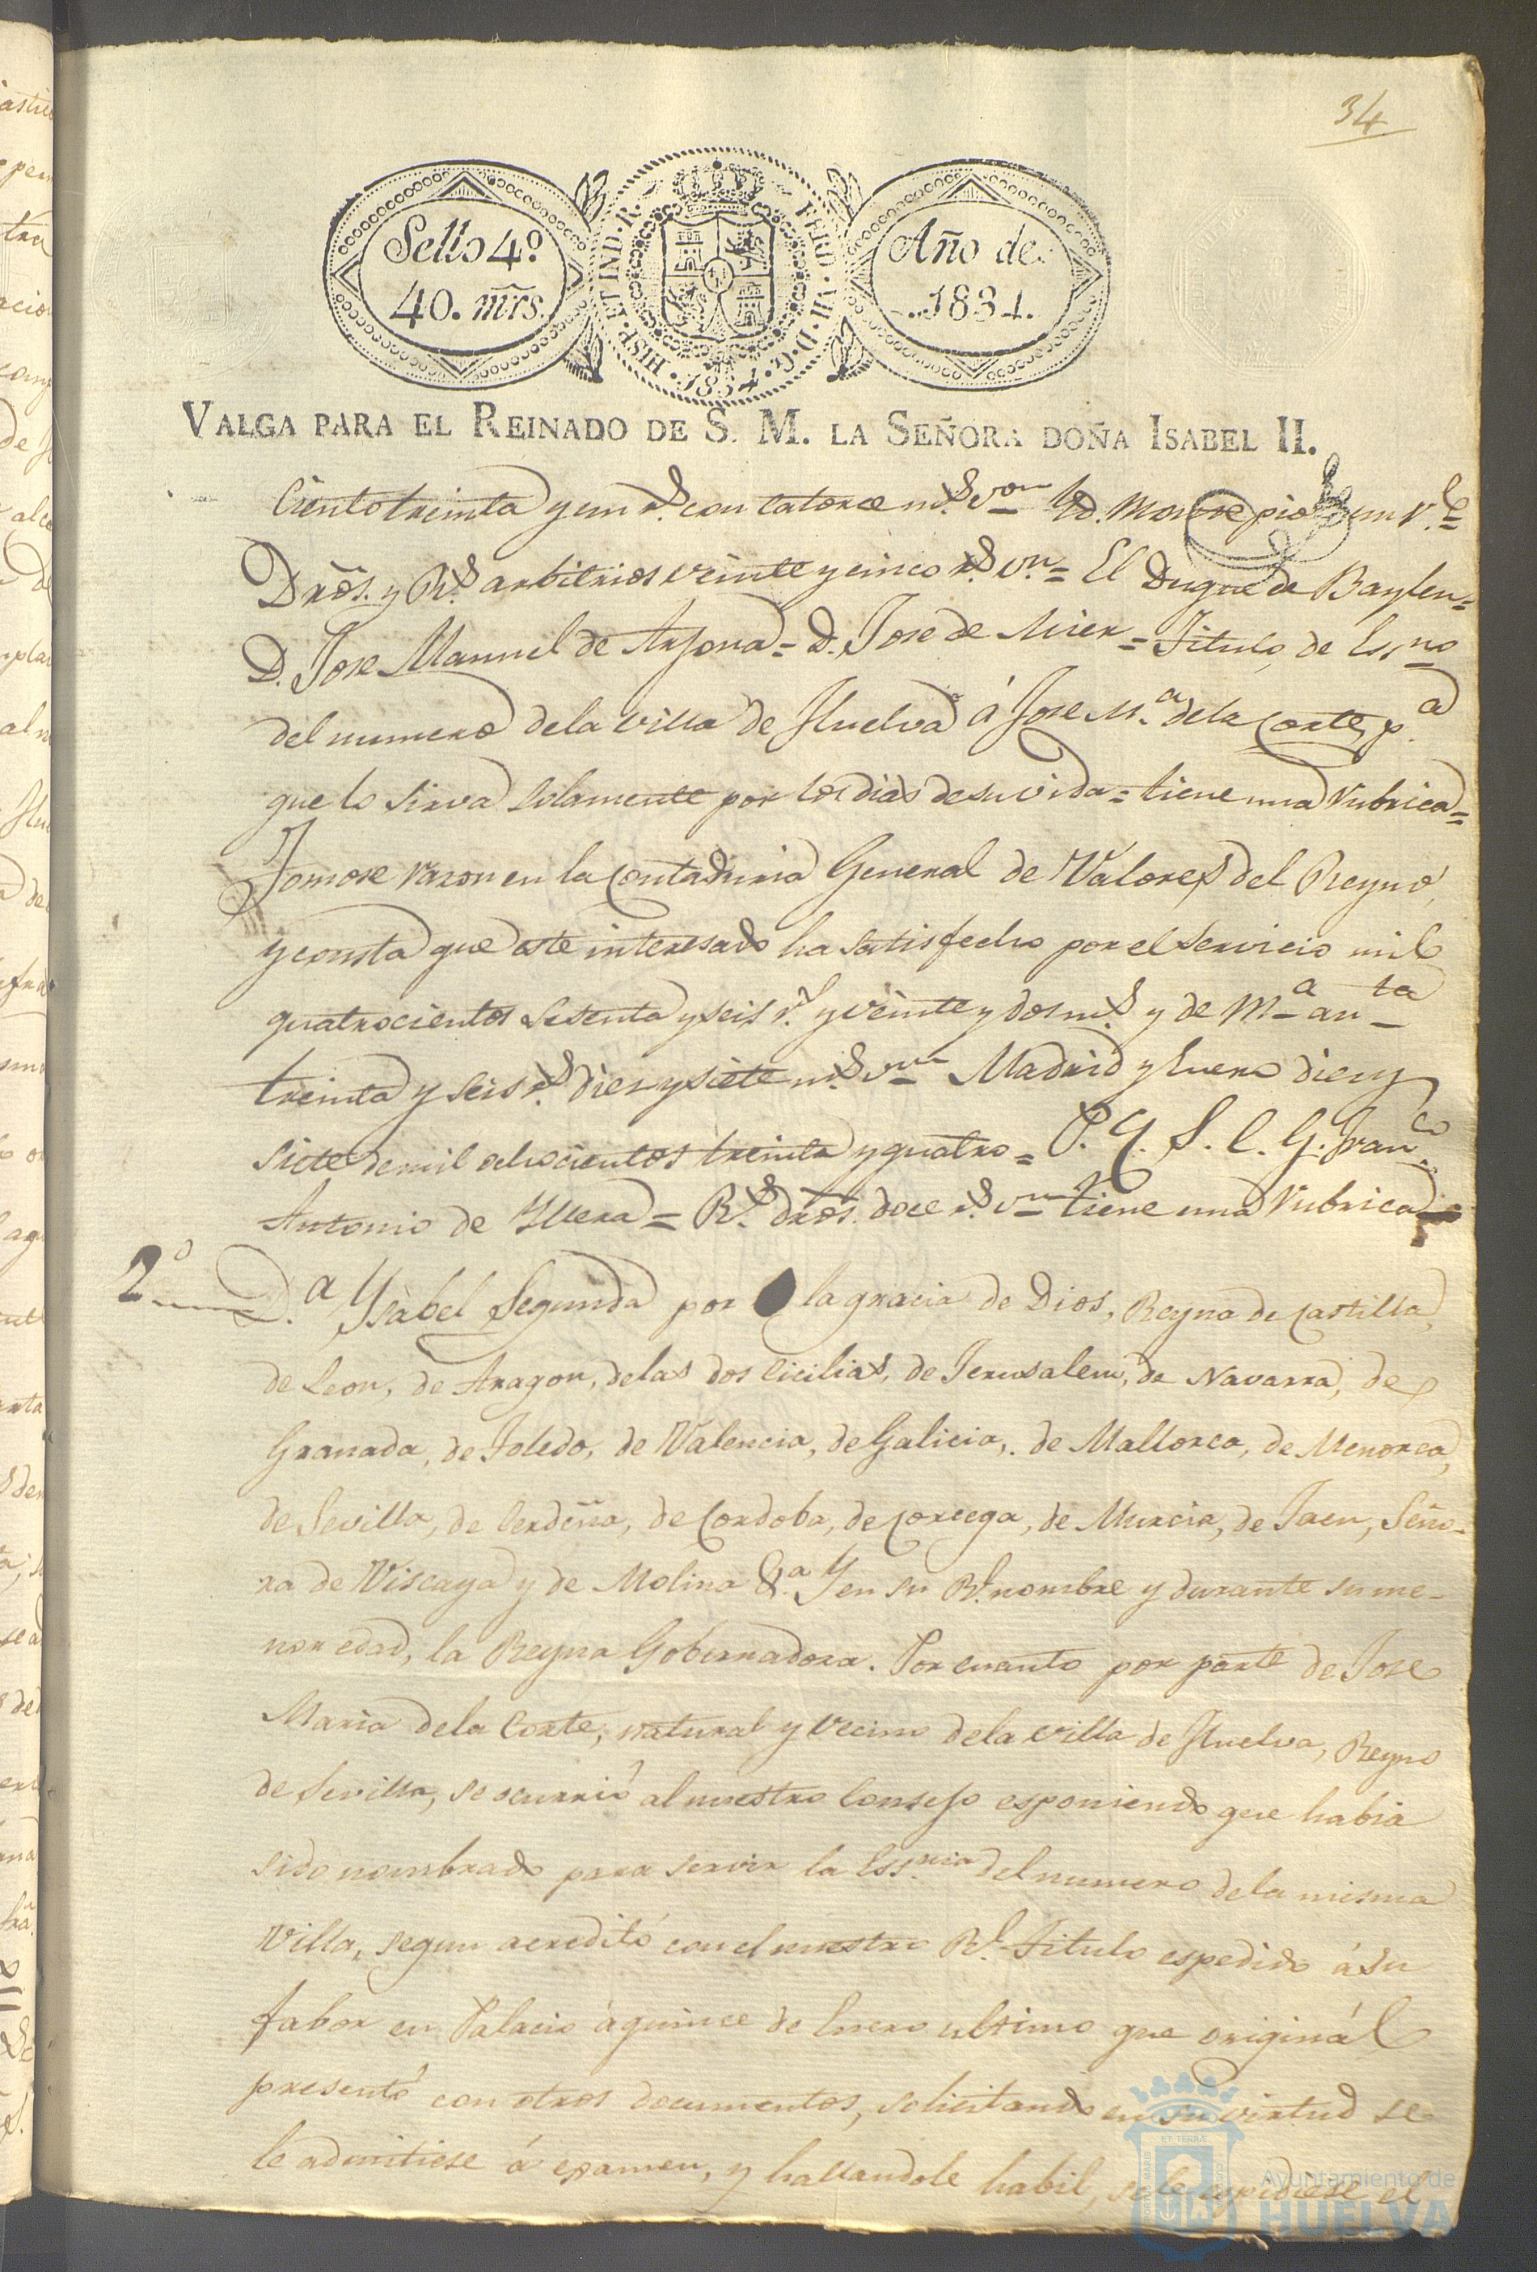 34
Sello 4º
40. mrs.
HISP. ET IND. R. FERD. VII. D. G. 1834.
Año de
1834.
VALGA PARA EL REINADO DE S. M. LA SEÑORA DOÑA ISABEL II.
Ciento treinta y un r.s con catorce m.s von Yd. Monte pio
Dros. y R.s arbitrios veinte y cinco r.s vn = El Duque de Baylen =
D. Jose Manuel de Arjona = D. Jose de Mier = Titulo de Essno
del numero dela villa de Huelva á Jose M.a dela Corte, p.a
que lo sirva solamente por los dias desu vida = tiene una Rubrica =
Tomose razon en la Contaduria General de Valores del Reyno,
y consta que este interesado ha satisfecho por el servicio mil
quatrocientos sesenta y seis r.s y veinte y dos m.s y de Ma anta
treinta y seis r.s diez y siete m.s von Madrid y Enero diez y
siete demil ochocientos treinta y quatro = P. Y. S. C. G. Fran.co
Antonio de Yllera = R.s dros. doce r.s vn tiene una Rubrica =
2º D.a Ysabel Segunda por la gracia de Dios, Reyna de Castilla,
de Leon, de Aragon, delas dos Cicilias, de Jerusalem, de Navarra, de
Granada, de Toledo, de Valencia, de Galicia, de Mallorca, de Menorca,
de Sevilla, de Cerdeña, de Cordoba, de Corcega, de Murcia, de Jaen, Seño-
ra de Viscaya y de Molina &.a Y en su Rl. nombre y durante su me-
nor edad, la Reyna Gobernadora. Por cuanto por parte de Jose
Maria dela Corte, natural y vecino dela villa de Huelva, Reyno
de Sevilla, se ocurrió al nuestro Consejo esponiendo que habia
sido nombrado para servir la Ess.nia del numero dela misma
Villa, segun acreditó con el nuestro Rl. Titulo espedido á su
fabor en Palacio á quince de Enero ultimo que originál
presentó con otros documentos, solicitando en su virtud se
le admitiese á examen, y hallandole habil, se le espidiese el
Ayuntamiento de
HUELVA